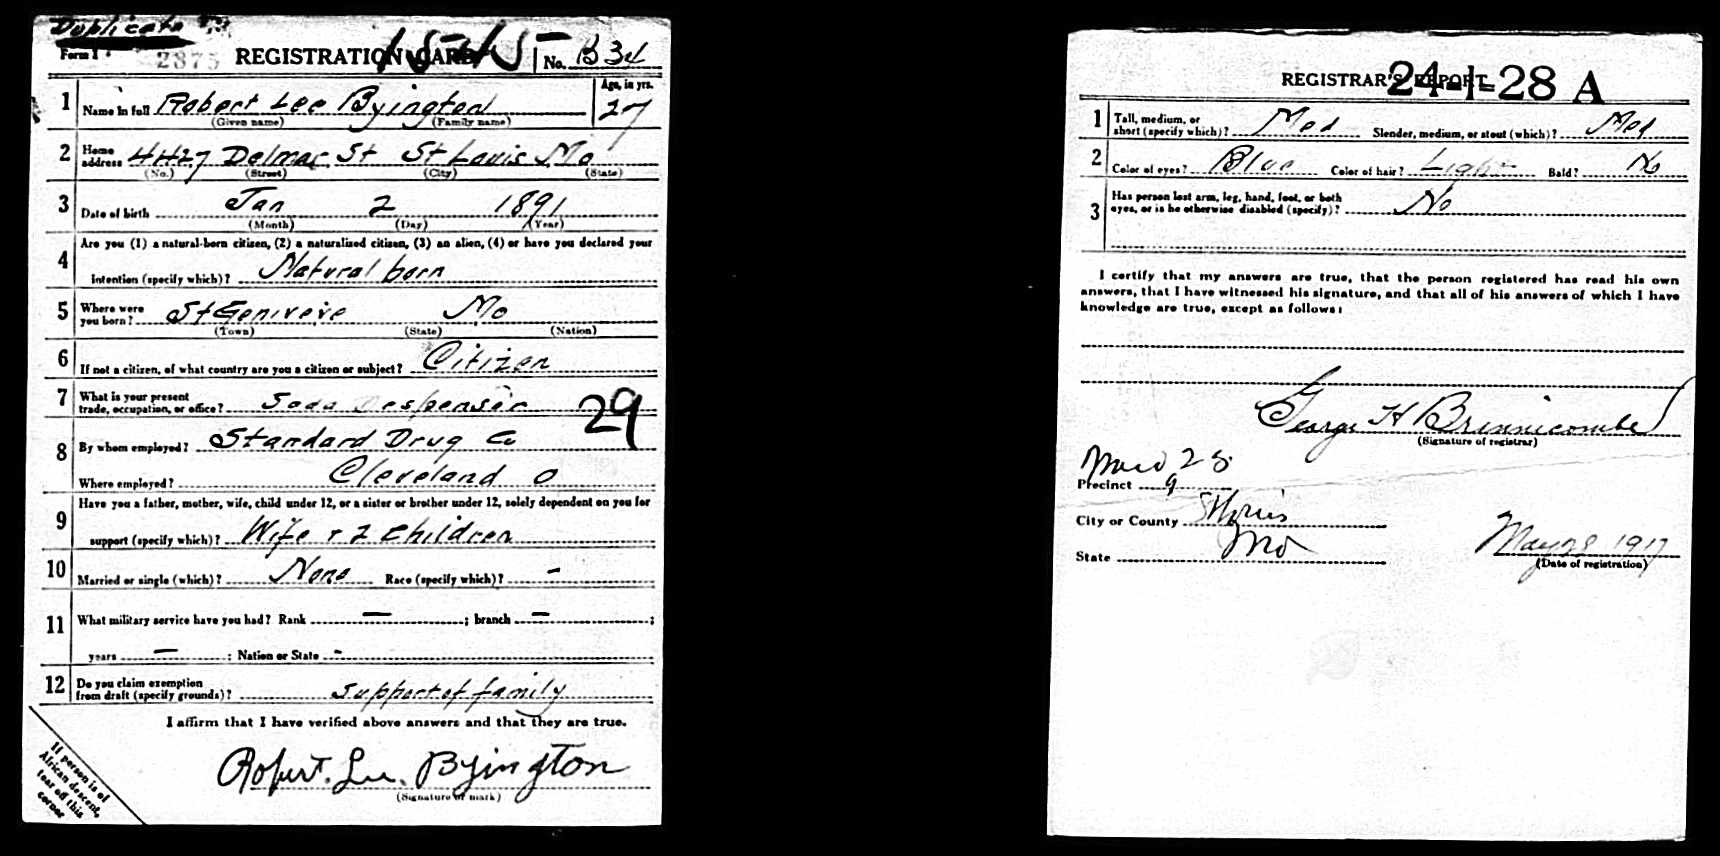 Duplicate
Form 1 2375 REGISTRATION CARD No. B34
1 Name in full Robert Lee Byington Age, in yrs. 27
(Given name) (Family name)
2 Home address 4427 Delmar St St Louis Mo
(No.) (Street) (City) (State)
3 Date of birth Jan 2 1891
(Month) (Day) (Year)
4 Are you (1) a natural-born citizen, (2) a naturalized citizen, (3) an alien, (4) or have you declared your
intention (specify which)? Natural born
5 Where were you born? St Geniveve Mo
(Town) (State) (Nation)
6 If not a citizen, of what country are you a citizen or subject? Citizen
7 What is your present trade, occupation, or office? Soda Despenser 29
8 By whom employed? Standard Drug Co
Where employed? Cleveland O
9 Have you a father, mother, wife, child under 12, or a sister or brother under 12, solely dependent on you for
support (specify which)? Wife + 2 Children
10 Married or single (which)? None Race (specify which)? -
11 What military service have you had? Rank — ; branch — ;
years — ; Nation or State -
12 Do you claim exemption from draft (specify grounds)? support of family
I affirm that I have verified above answers and that they are true.
Robert Lee Byington
(Signature or mark)
If person is of
African descent,
tear off this
corner
REGISTRAR'S REPORT 24-1-28 A
1 Tall, medium, or short (specify which)? Med Slender, medium, or stout (which)? Med
2 Color of eyes? Blue Color of hair? Light Bald? No
3 Has person lost arm, leg, hand, foot, or both eyes, or is he otherwise disabled (specify)? No
I certify that my answers are true, that the person registered has read his own
answers, that I have witnessed his signature, and that all of his answers of which I have
knowledge are true, except as follows:
George H Brinnicombe
(Signature of registrar)
Ward 28
Precinct 9
City or County St Louis
State Mo
May 28 1917
(Date of registration)